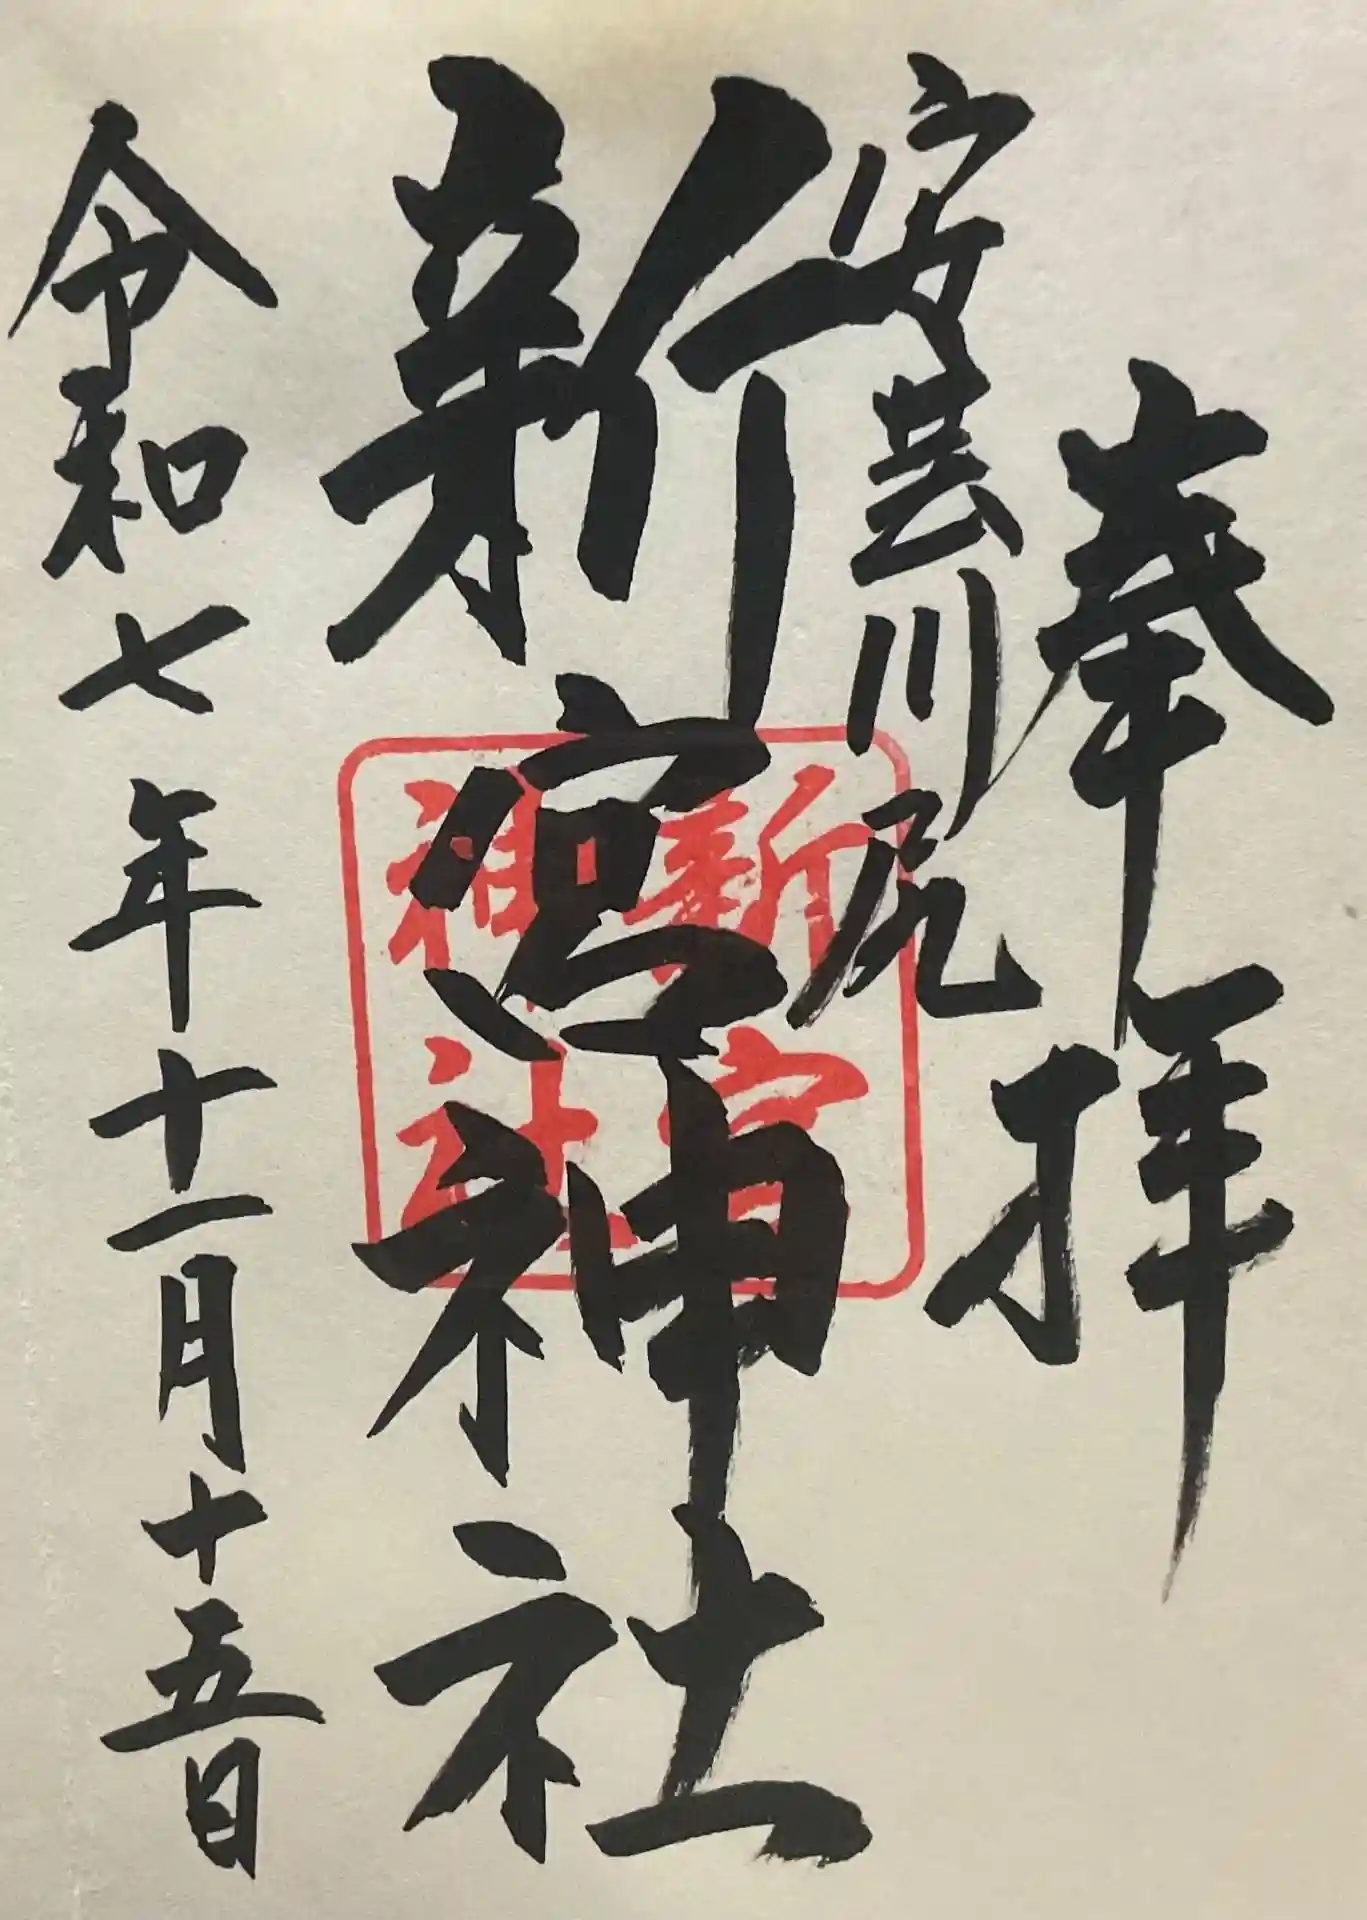 奉拝
安芸川尻
新宮神社
新宮
神社
令和七年十一月十五日